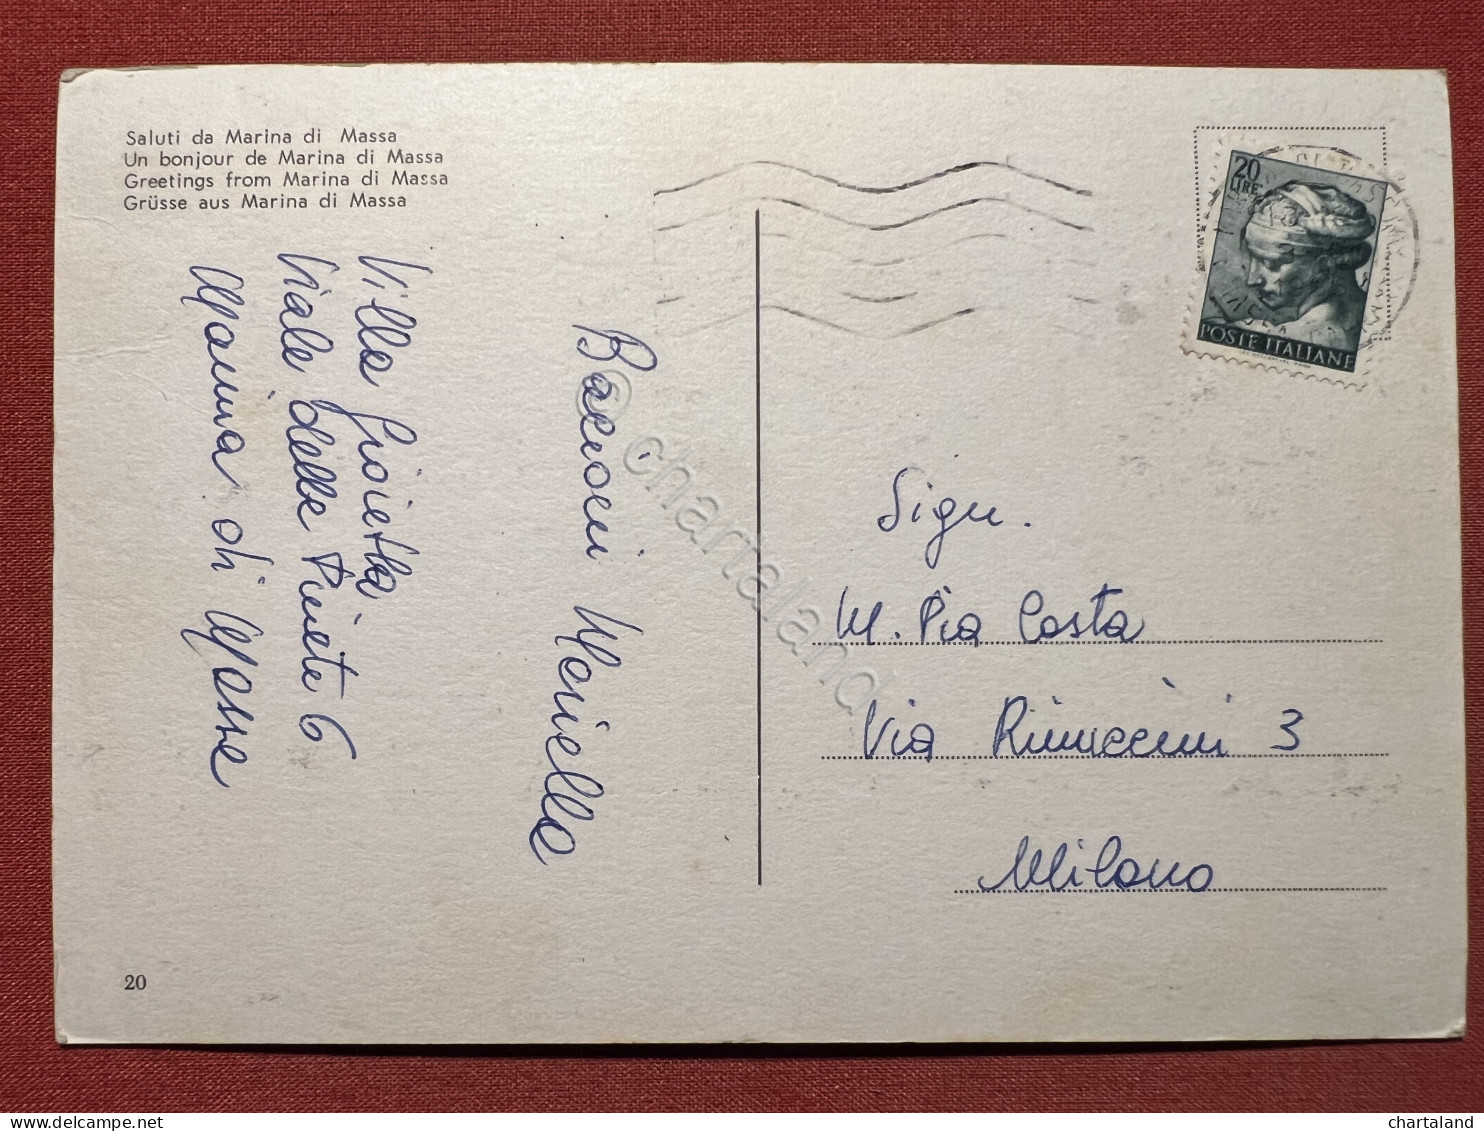 Saluti da Marina di Massa
Un bonjour de Marina di Massa
Greetings from Marina di Massa
Grüsse aus Marina di Massa
Villa Gioietta
Viale delle Pinete 6
Marina di Massa
Bacioni Mariella
20
LIRE
POSTE ITALIANE
Sign.
M. Pia Costa
Via Rinuccini 3
Milano
20
© chartaland
delcampe.net
chartaland